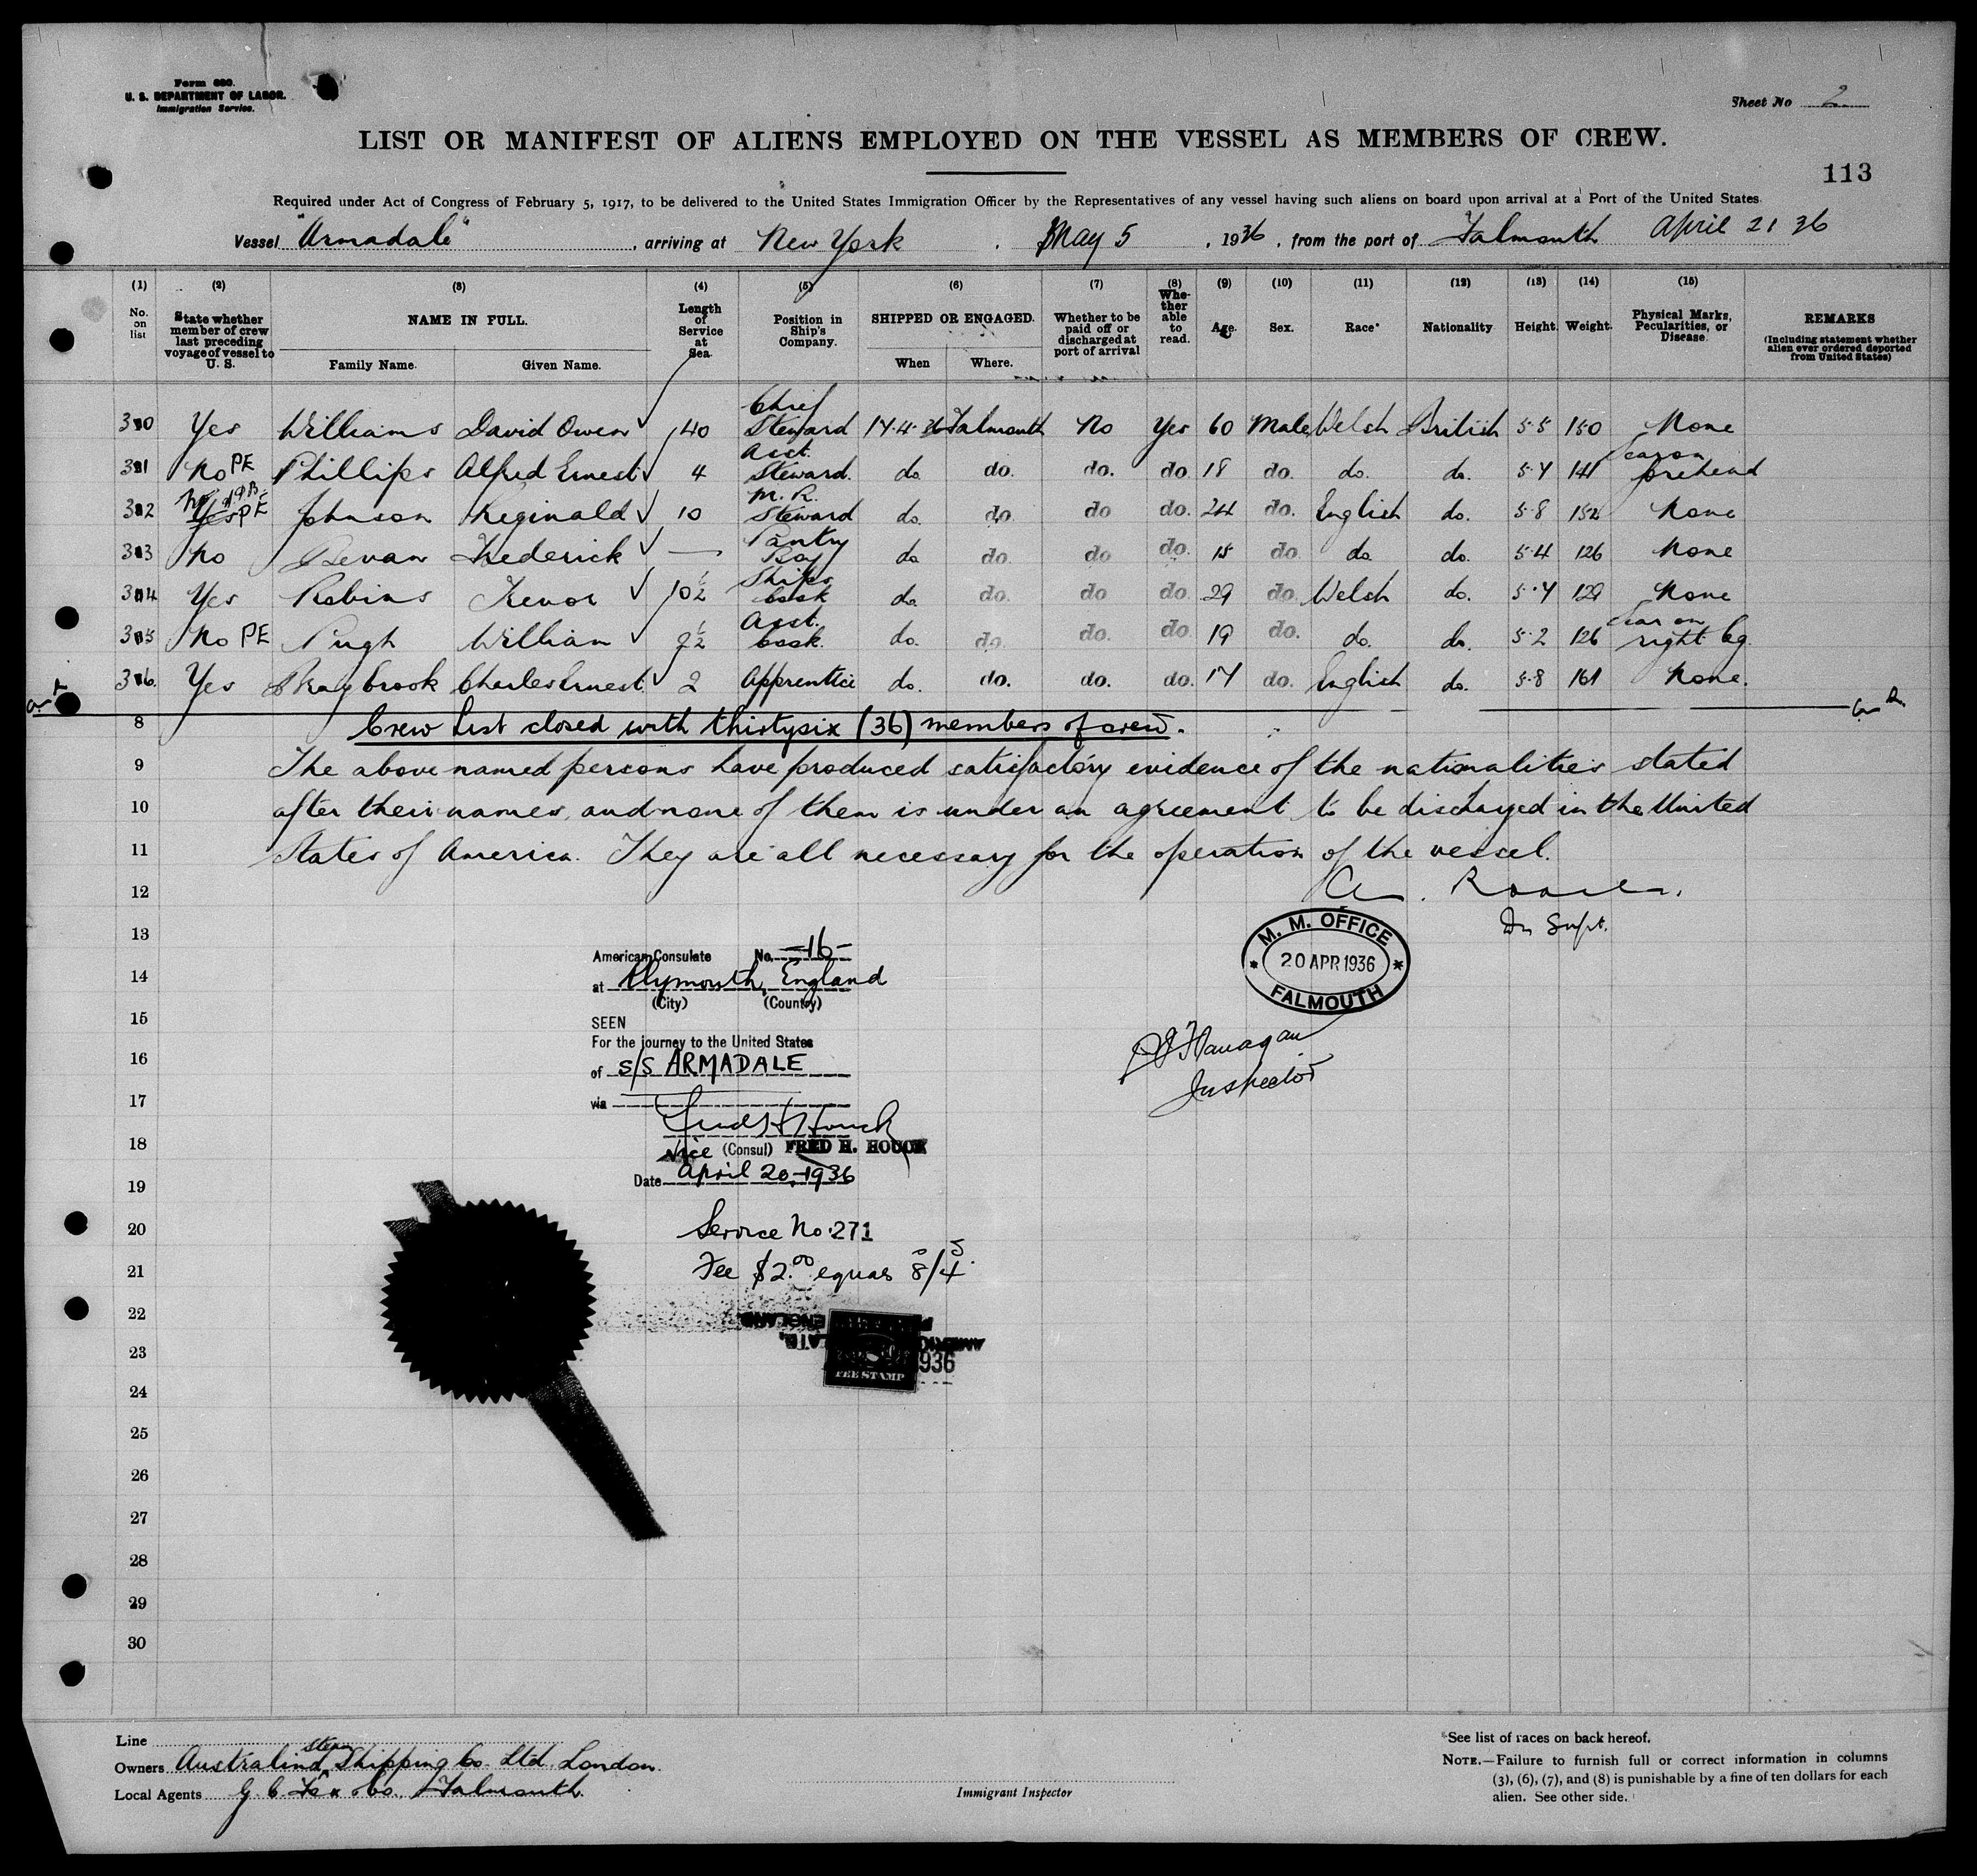 Form 680.
U. S. DEPARTMENT OF LABOR.
Immigration Service.
Sheet No 2
LIST OR MANIFEST OF ALIENS EMPLOYED ON THE VESSEL AS MEMBERS OF CREW.
113
Required under Act of Congress of February 5, 1917, to be delivered to the United States Immigration Officer by the Representatives of any vessel having such aliens on board upon arrival at a Port of the United States.
Vessel "Armadale", arriving at New York, May 5, 1936, from the port of Falmouth April 21 36
(1) (2) (3) (4) (5) (6) (7) (8) (9) (10) (11) (12) (13) (14) (15)
No. on list
State whether member of crew last preceding voyage of vessel to U. S.
NAME IN FULL.
Family Name. Given Name.
Length of Service at Sea.
Position in Ship's Company.
SHIPPED OR ENGAGED.
When Where.
Whether to be paid off or discharged at port of arrival
Whe-ther able to read.
Age. Sex. Race* Nationality Height. Weight.
Physical Marks, Pecularities, or Disease.
REMARKS
(Including statement whether alien ever ordered deported from United States)
30 Yes Williams David Owen 40 Chief Steward 17.4.36 Falmouth No Yes 60 Male Welsh British 5.5 150 None
31 No PE Phillips Alfred Ernest 4 Asst. Steward. do. do. do. do. 18 do. do. do. 5.7 141 scar on forehead
32 Yes PE Johnson Reginald 10 M. R. Steward do. do. do do. 24 do. English do. 5.8 152 None
33 No Bevan Frederick — Pantry Boy do do. do do. 15 do. do do. 5.4 126 None
34 Yes Robins Trevor 10½ Ships Cook do. do. do do. 29 do. Welsh do. 5.7 129 None
35 No PE Pugh William 2½ Asst. Cook. do. do. do. do. 19 do. do. do. 5.2 126 scar on right leg.
36. Yes Braybrook Charles Ernest 2 Apprentice do. do. do. do. 17 do. English do. 5.8 161 None.
8 Crew List closed with thirtysix (36) members of crew.
9 The above named persons have produced satisfactory evidence of the nationalities stated
10 after their names, and none of them is under an agreement to be discharged in the United
11 States of America. They are all necessary for the operation of the vessel.
12
Supt.
13
M. M. OFFICE
* 20 APR 1936 *
FALMOUTH
American Consulate No. -16-
14
at Plymouth, England
(City) (Country)
15
SEEN
For the journey to the United States
16
of S/S ARMADALE
Flanagan
Inspector
17
via
Fred H Houck
18
Vice (Consul) FRED H. HOUCK
Date April 20, 1936
19
20
Service No. 271
21
Fee $2.00 equas 8/4
22
ENGLAND
23
936
FEE STAMP
24
25
26
27
28
29
30
Line
Owners Australind Steam Shipping Co Ltd. London.
Local Agents G. C. Fox & Co. Falmouth.
Immigrant Inspector
*See list of races on back hereof.
NOTE.—Failure to furnish full or correct information in columns
(3), (6), (7), and (8) is punishable by a fine of ten dollars for each
alien. See other side.